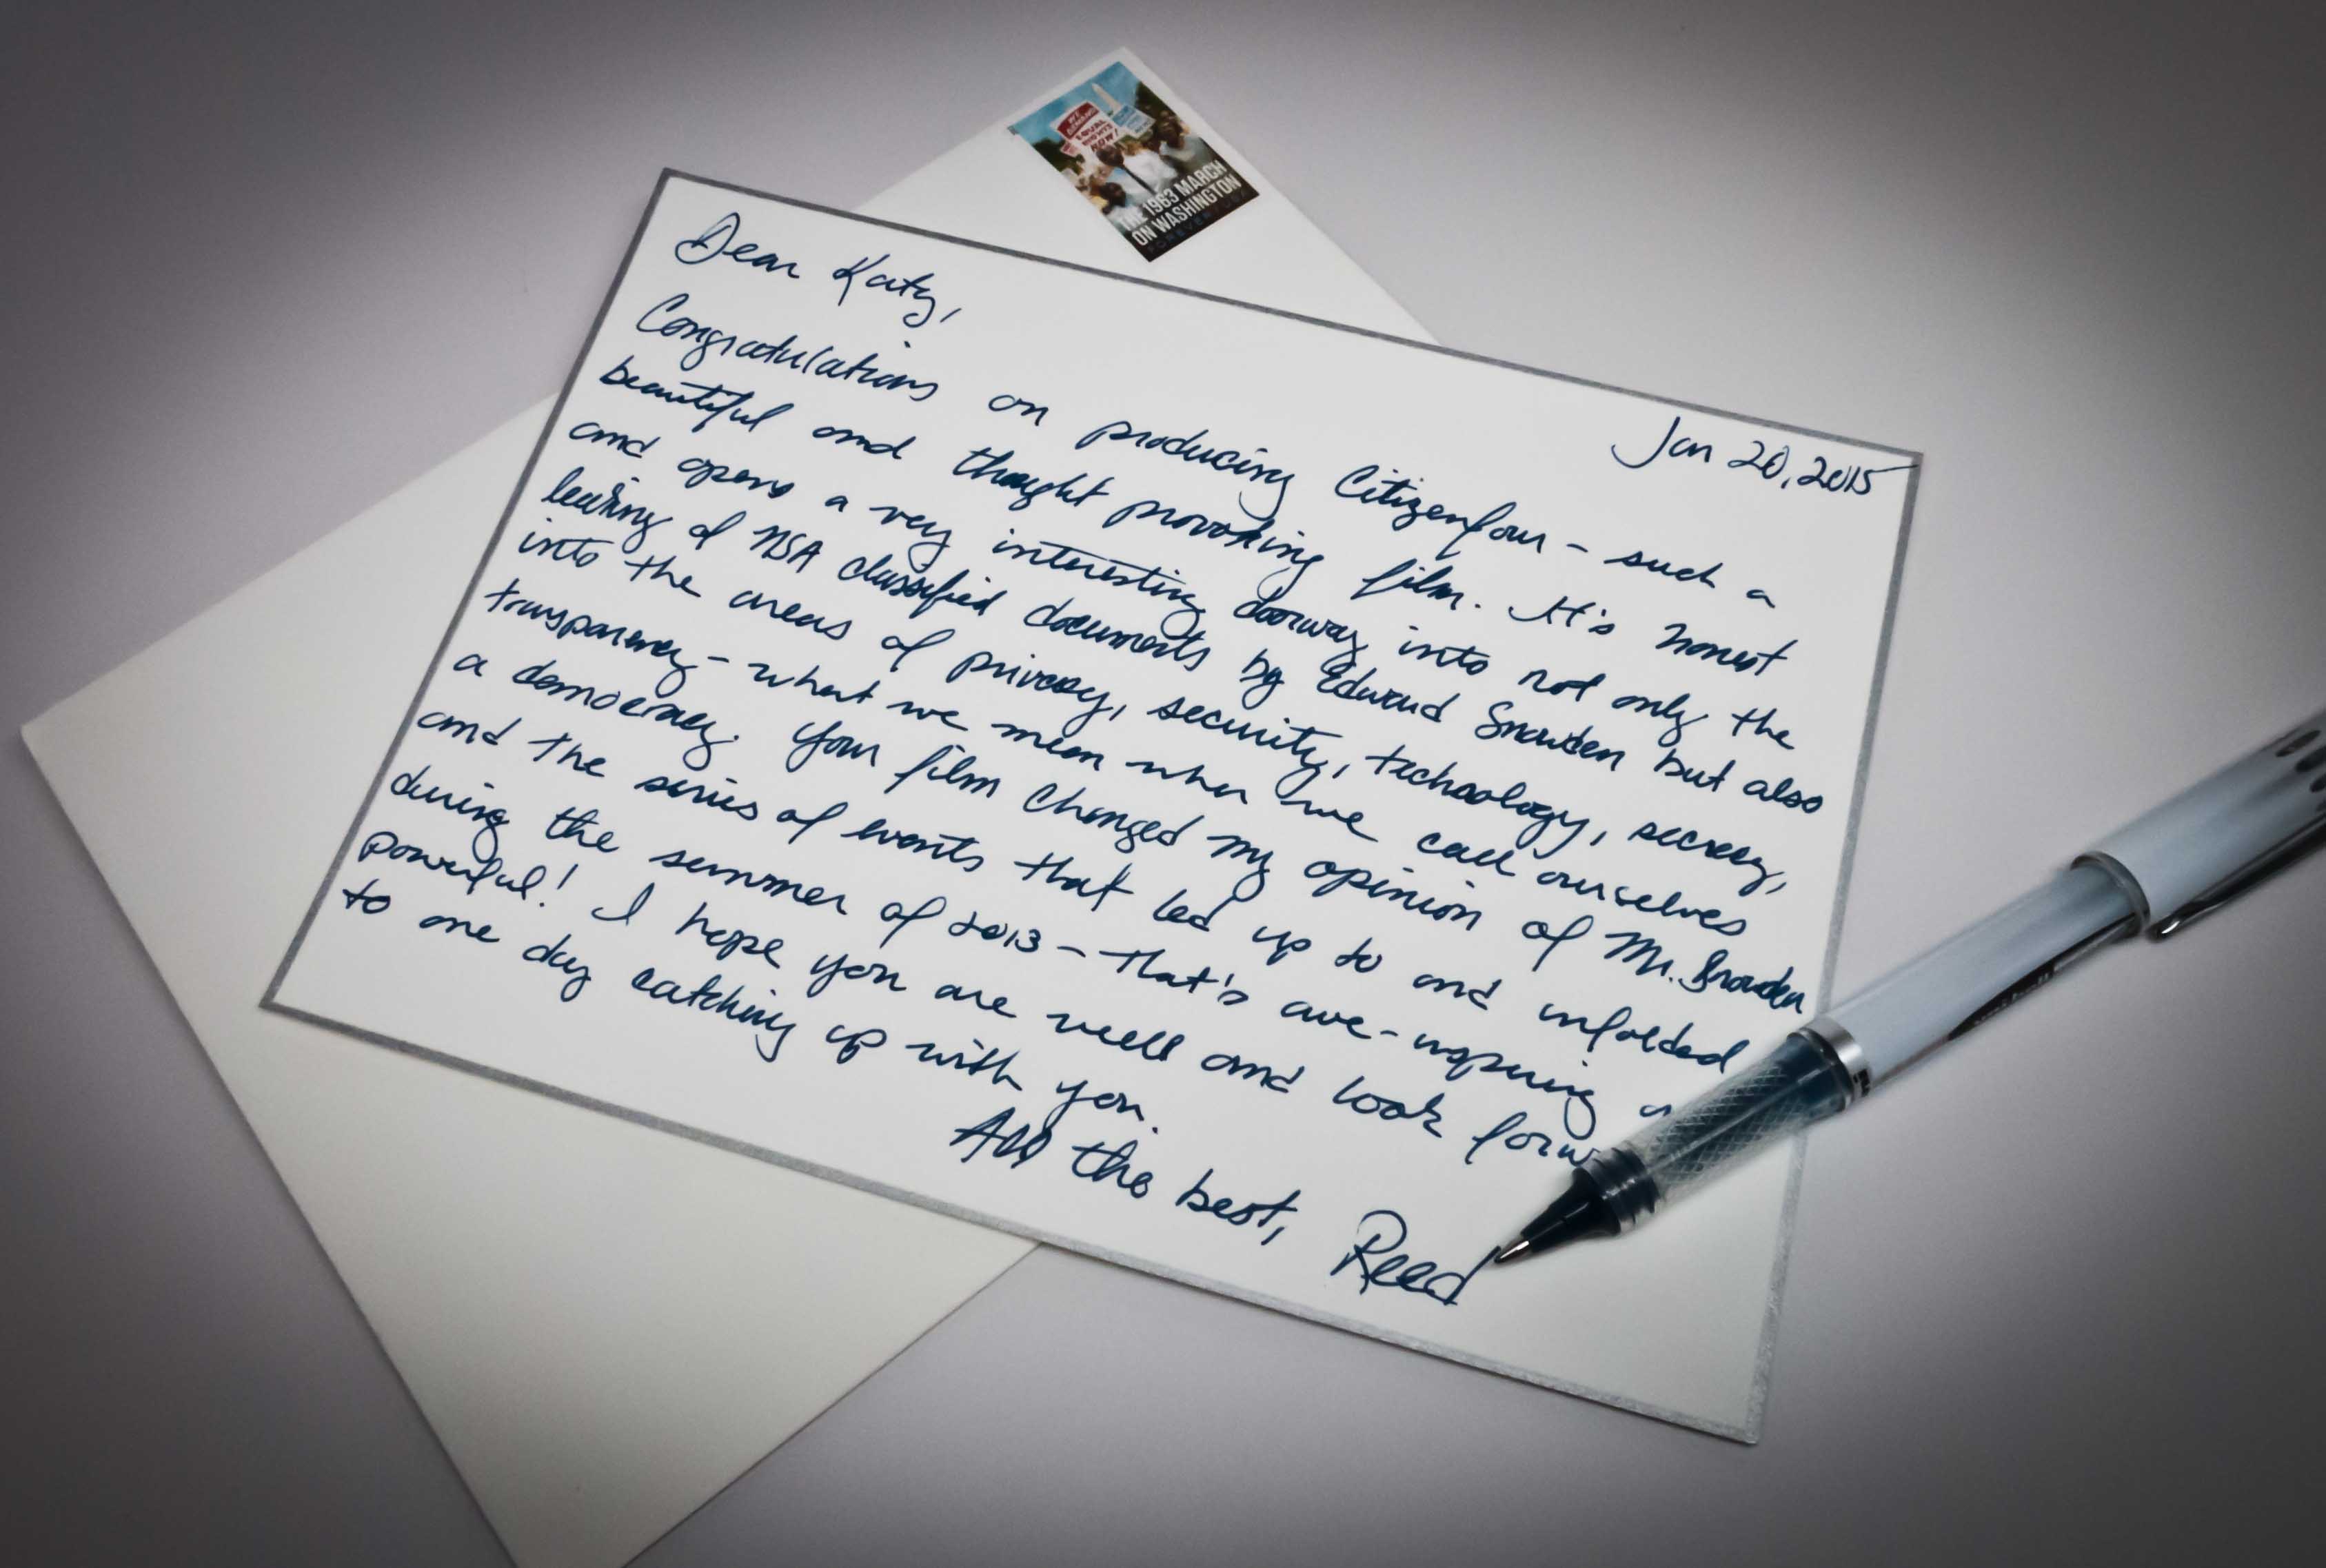 EQUAL
RIGHTS
NOW!
THE 1963 MARCH
ON WASHINGTON
FOREVER
Jan 20, 2015
Dear Katy,
Congratulations on producing Citizenfour - such a
beautiful and thought provoking film. It's honest
and opens a very interesting doorway into not only the
leaking of NSA classified documents by Edward Snowden but also
into the areas of privacy, security, technology, secrecy,
transparency - what we mean when we call ourselves
a democracy. Your film changed my opinion of Mr. Snowden
and the series of events that led up to and unfolded
during the summer of 2013 - that's awe-inspiring
powerful! I hope you are well and look forw
to one day catching up with you.
All the best, Reed